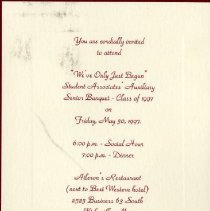 You are cordially invited
to attend
"We've Only Just Begun"
Student Associates' Auxiliary
Senior Banquet - Class of 1997
on
Friday, May 30, 1997.
6:00 p.m. - Social Hour
7:00 p.m. - Dinner
Restaurant
(next to Best Western hotel)
2525 Business 63 South